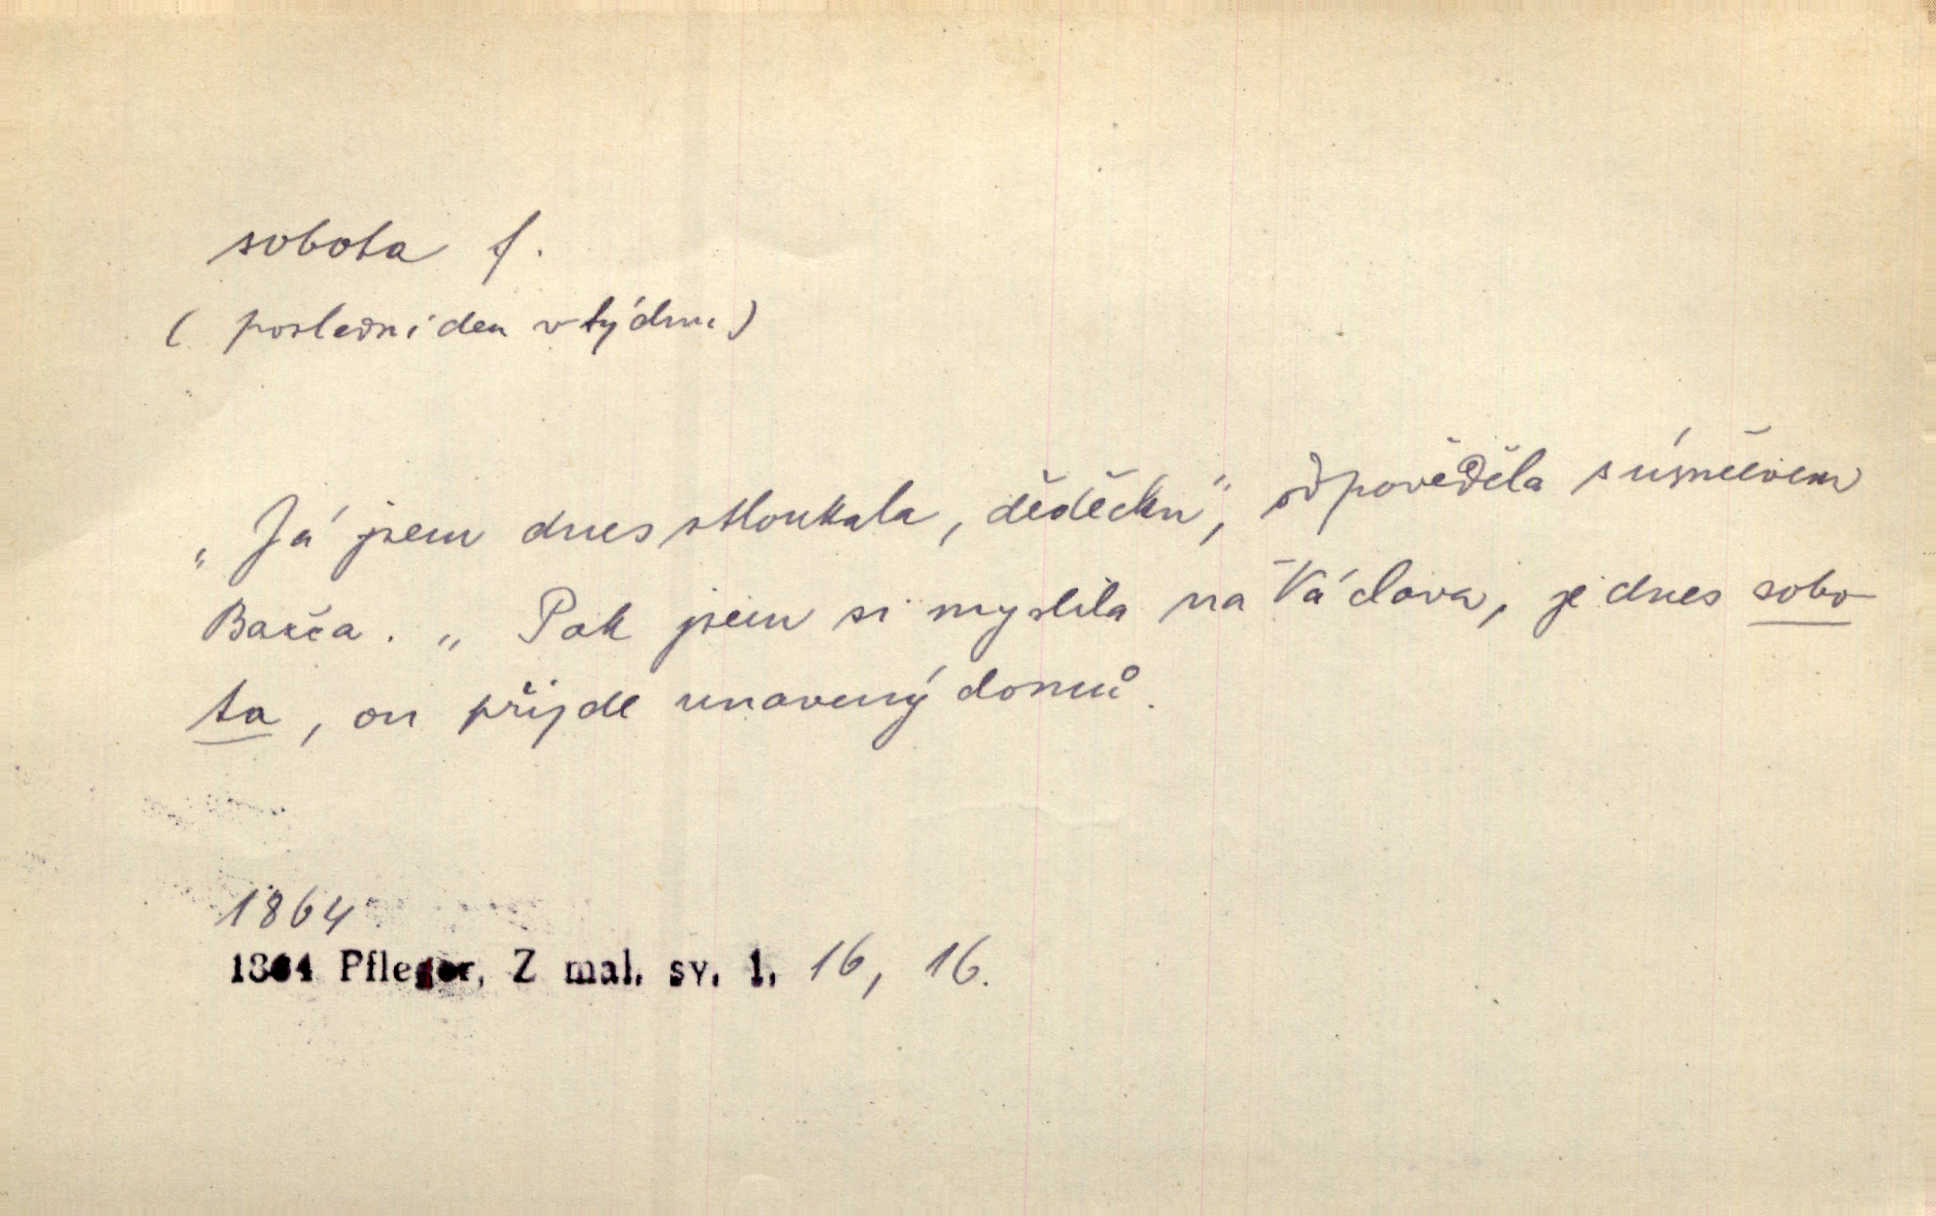 sobota f.
( poslední den v týdnu )
„Já jsem dnes stloukala, dědečku“, odpověděla s úsměvem
Barča. „ Pak jsem si myslila na Václava, je dnes sobo-
ta, on přijde unavený domů.
1864
1864 Pfleger, Z mal. sv. 1. 16, 16.